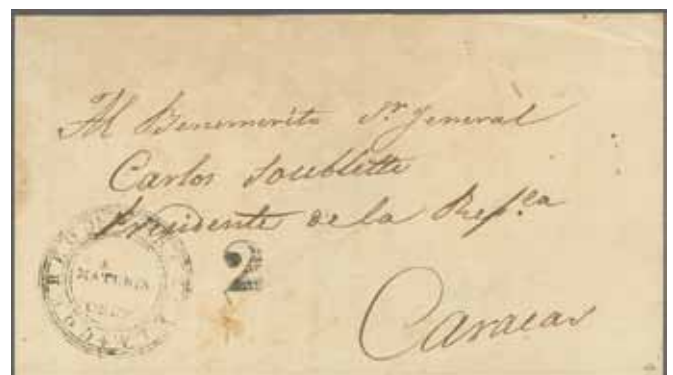 Al Benemerito Sr. General
Carlos Soublette
Presidente de la Repca
2
MATURIN
Caracas